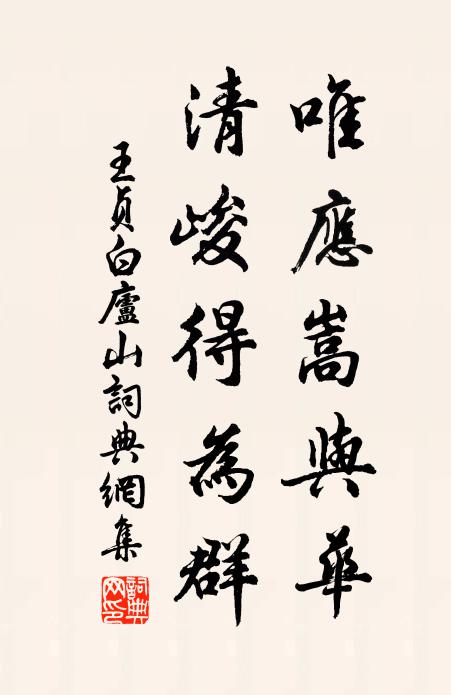 唯應嵩與華
清峻得為群
王貞白廬山詞典網集
詞典网印